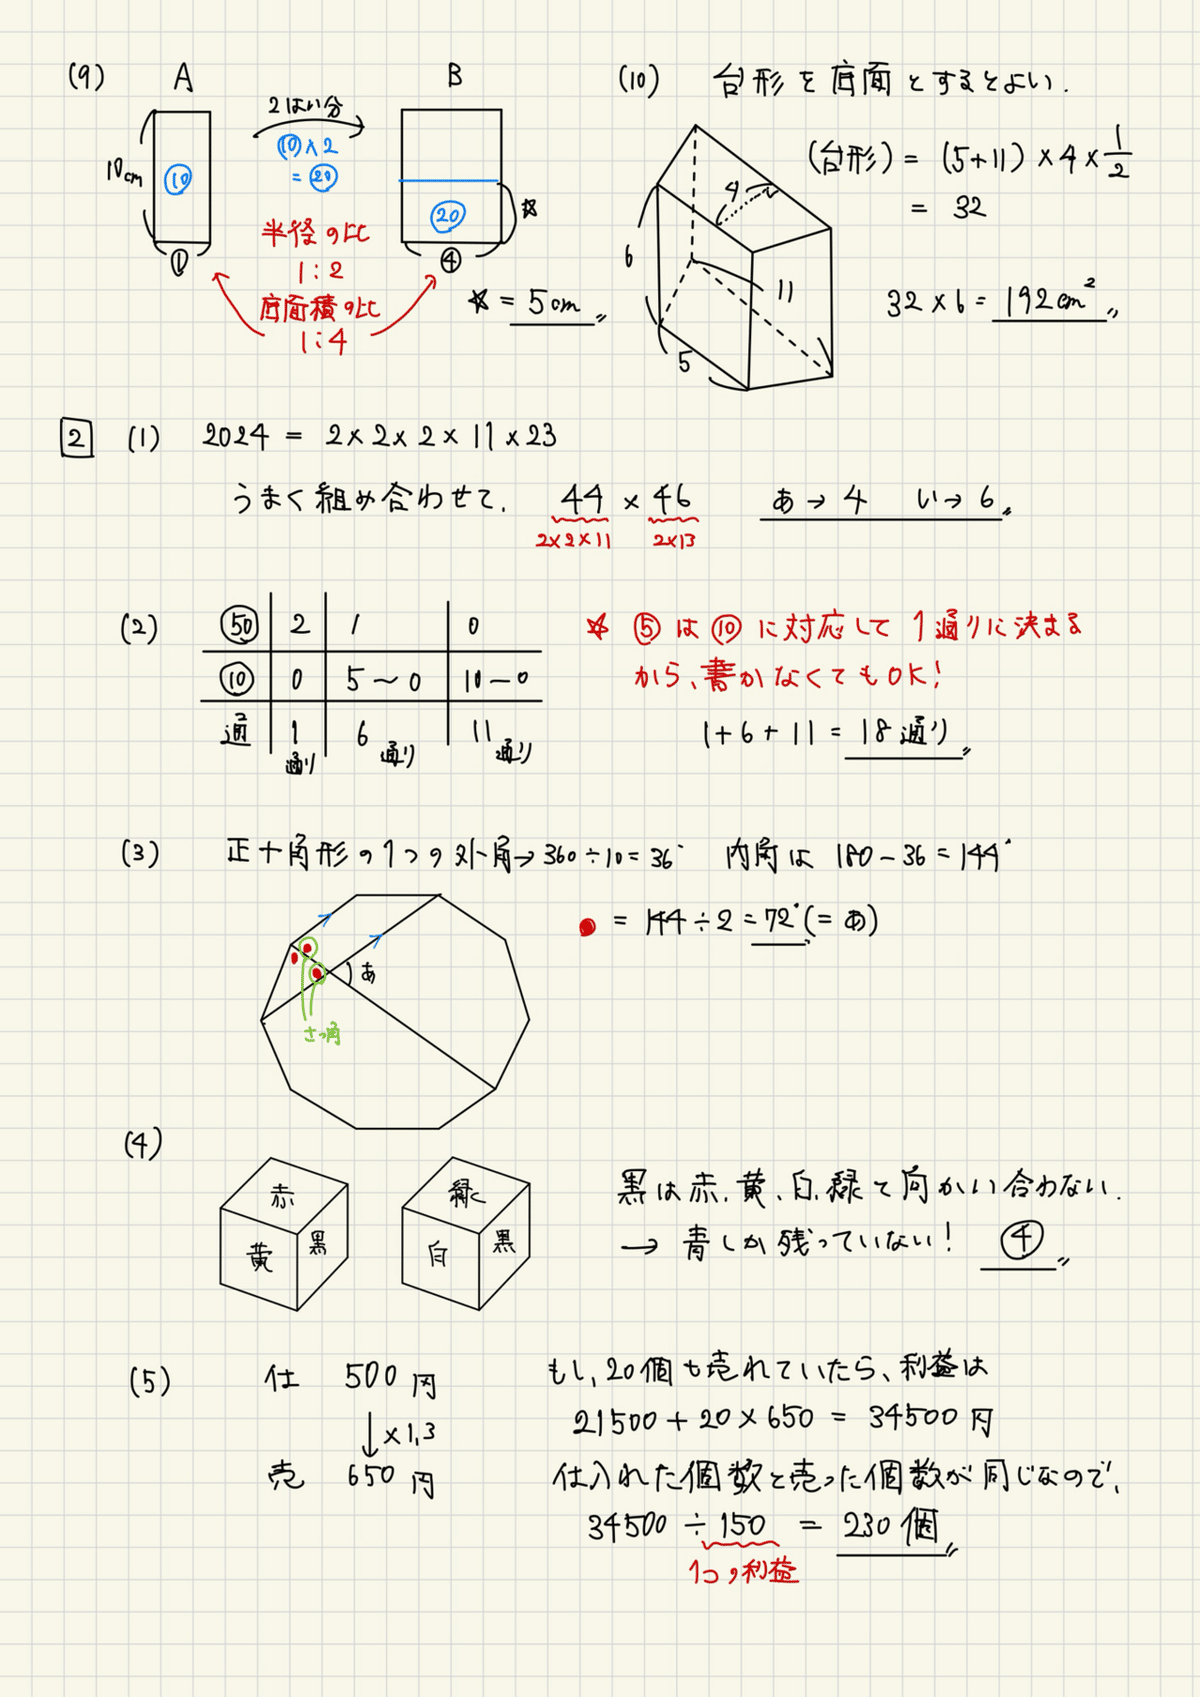 (9) A B
2はい分
⑩×2
= ⑳
10cm
⑩
⑳
☆
① ④
半径の比
1:2
底面積の比
1:4
☆ = 5cm
(10) 台形を底面とするとよい.
(台形) = (5+11) × 4 × 1/2
= 32
32 × 6 = 192cm²
4
6
11
5
2 (1) 2024 = 2×2×2×11×23
うまく組み合わせて. 44 × 46 あ→4 い→6
2×2×11 2×13
(2) ㊿ 2 1 0
⑩ 0 5〜0 10〜0
通 1通り 6通り 11通り
☆ ⑤は⑩に対応して1通りに決まる
から、書かなくてもOK!
1+6+11 = 18通り
(3) 正十角形の1つの外角→360÷10=36° 内角は 180-36=144°
● = 144÷2=72°(=あ)
あ
さっ角
(4)
赤
黄 黒
緑
白 黒
黒は赤、黄、白、緑と向かい合わない.
→ 青しか残っていない! ④
(5) 仕 500円
↓×1.3
売 650円
もし、20個も売れていたら、利益は
21500 + 20×650 = 34500円
仕入れた個数と売った個数が同じなので、
34500 ÷ 150 = 230個
1つの利益